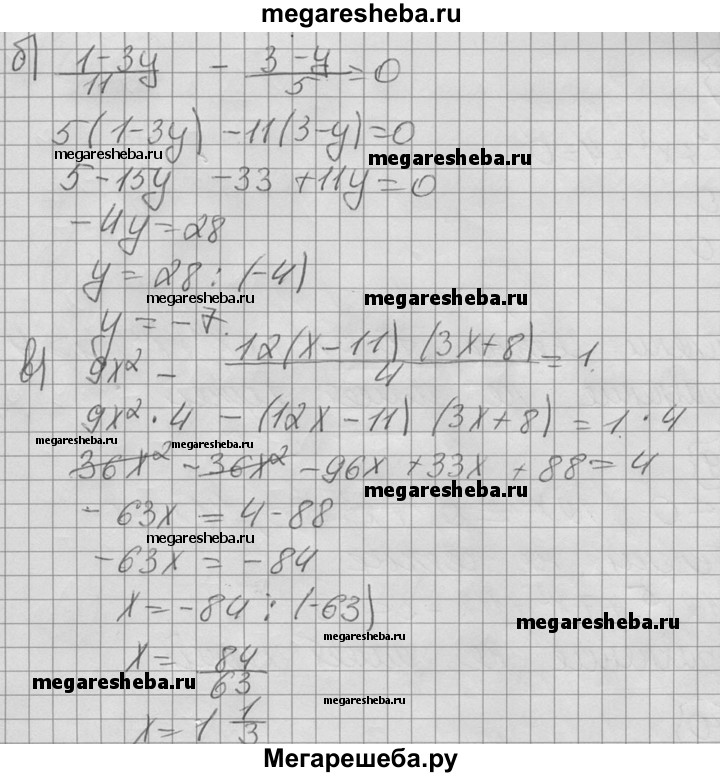 megaresheba.ru
б) (1-3y)/11 - (3-y)/5 = 0
5(1-3y) -11(3-y)=0
megaresheba.ru
megaresheba.ru
5-15y -33 +11y=0
-4y=28
y = 28 : (-4)
megaresheba.ru
megaresheba.ru
y = -7.
в) 9x² - (12(x-11)(3x+8))/4 = 1.
9x²·4 -(12x-11)(3x+8) = 1·4
megaresheba.ru
megaresheba.ru
36x² -36x² -96x +33x +88=4
megaresheba.ru
-63x = 4-88
megaresheba.ru
-63x = -84
x=-84 : (-63)
megaresheba.ru
megaresheba.ru
x= 84/63
megaresheba.ru
megaresheba.ru
x= 1 1/3
Мегарешеба.ру